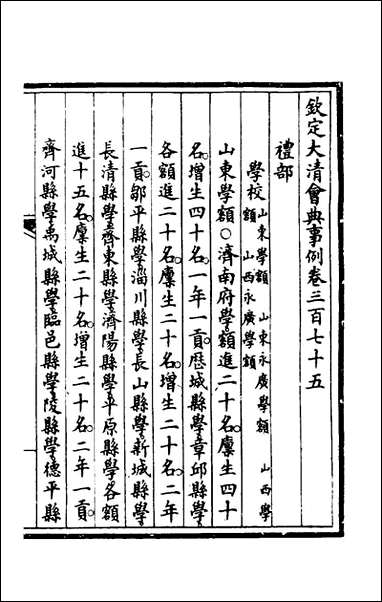 欽定大清會典事例卷三百七十五
禮部
學校 山東學額 山東永廣學額 山西學
額 山西永廣學額
山東學額○濟南府學額進二十名廩生四十
名增生四十名一年一貢歷城縣學章邱縣學
各額進二十名廩生二十名增生二十名二年
一貢鄒平縣學淄川縣學長山縣學新城縣學
長清縣學齊東縣學濟陽縣學平原縣學各額
進十五名廩生二十名增生二十名二年一貢
齊河縣學禹城縣學臨邑縣學陵縣學德平縣